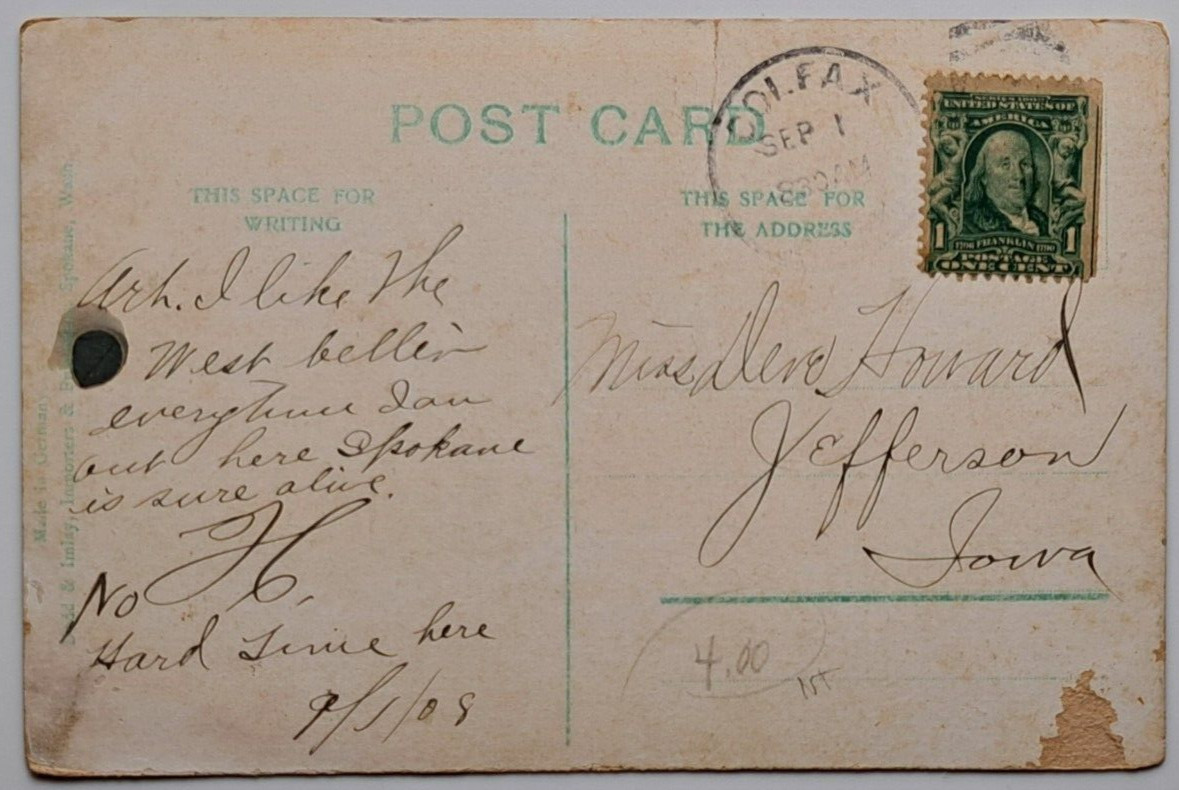 POST CARD
THIS SPACE FOR
WRITING
THIS SPACE FOR
THE ADDRESS
COLFAX
SEP 1
830 AM
SERIES 1902
UNITED STATES OF
AMERICA
1 1706 FRANKLIN 1790 1
POSTAGE
ONE CENT
I like the
West bettir
everytime I am
out here Spokane
is sure alive.
H.
No
Hard Time here
9/1/08
Miss Howard
Jefferson
Iowa
4.00
1ST
Made in Germany
& Imlay, Importers & Spokane, Wash.